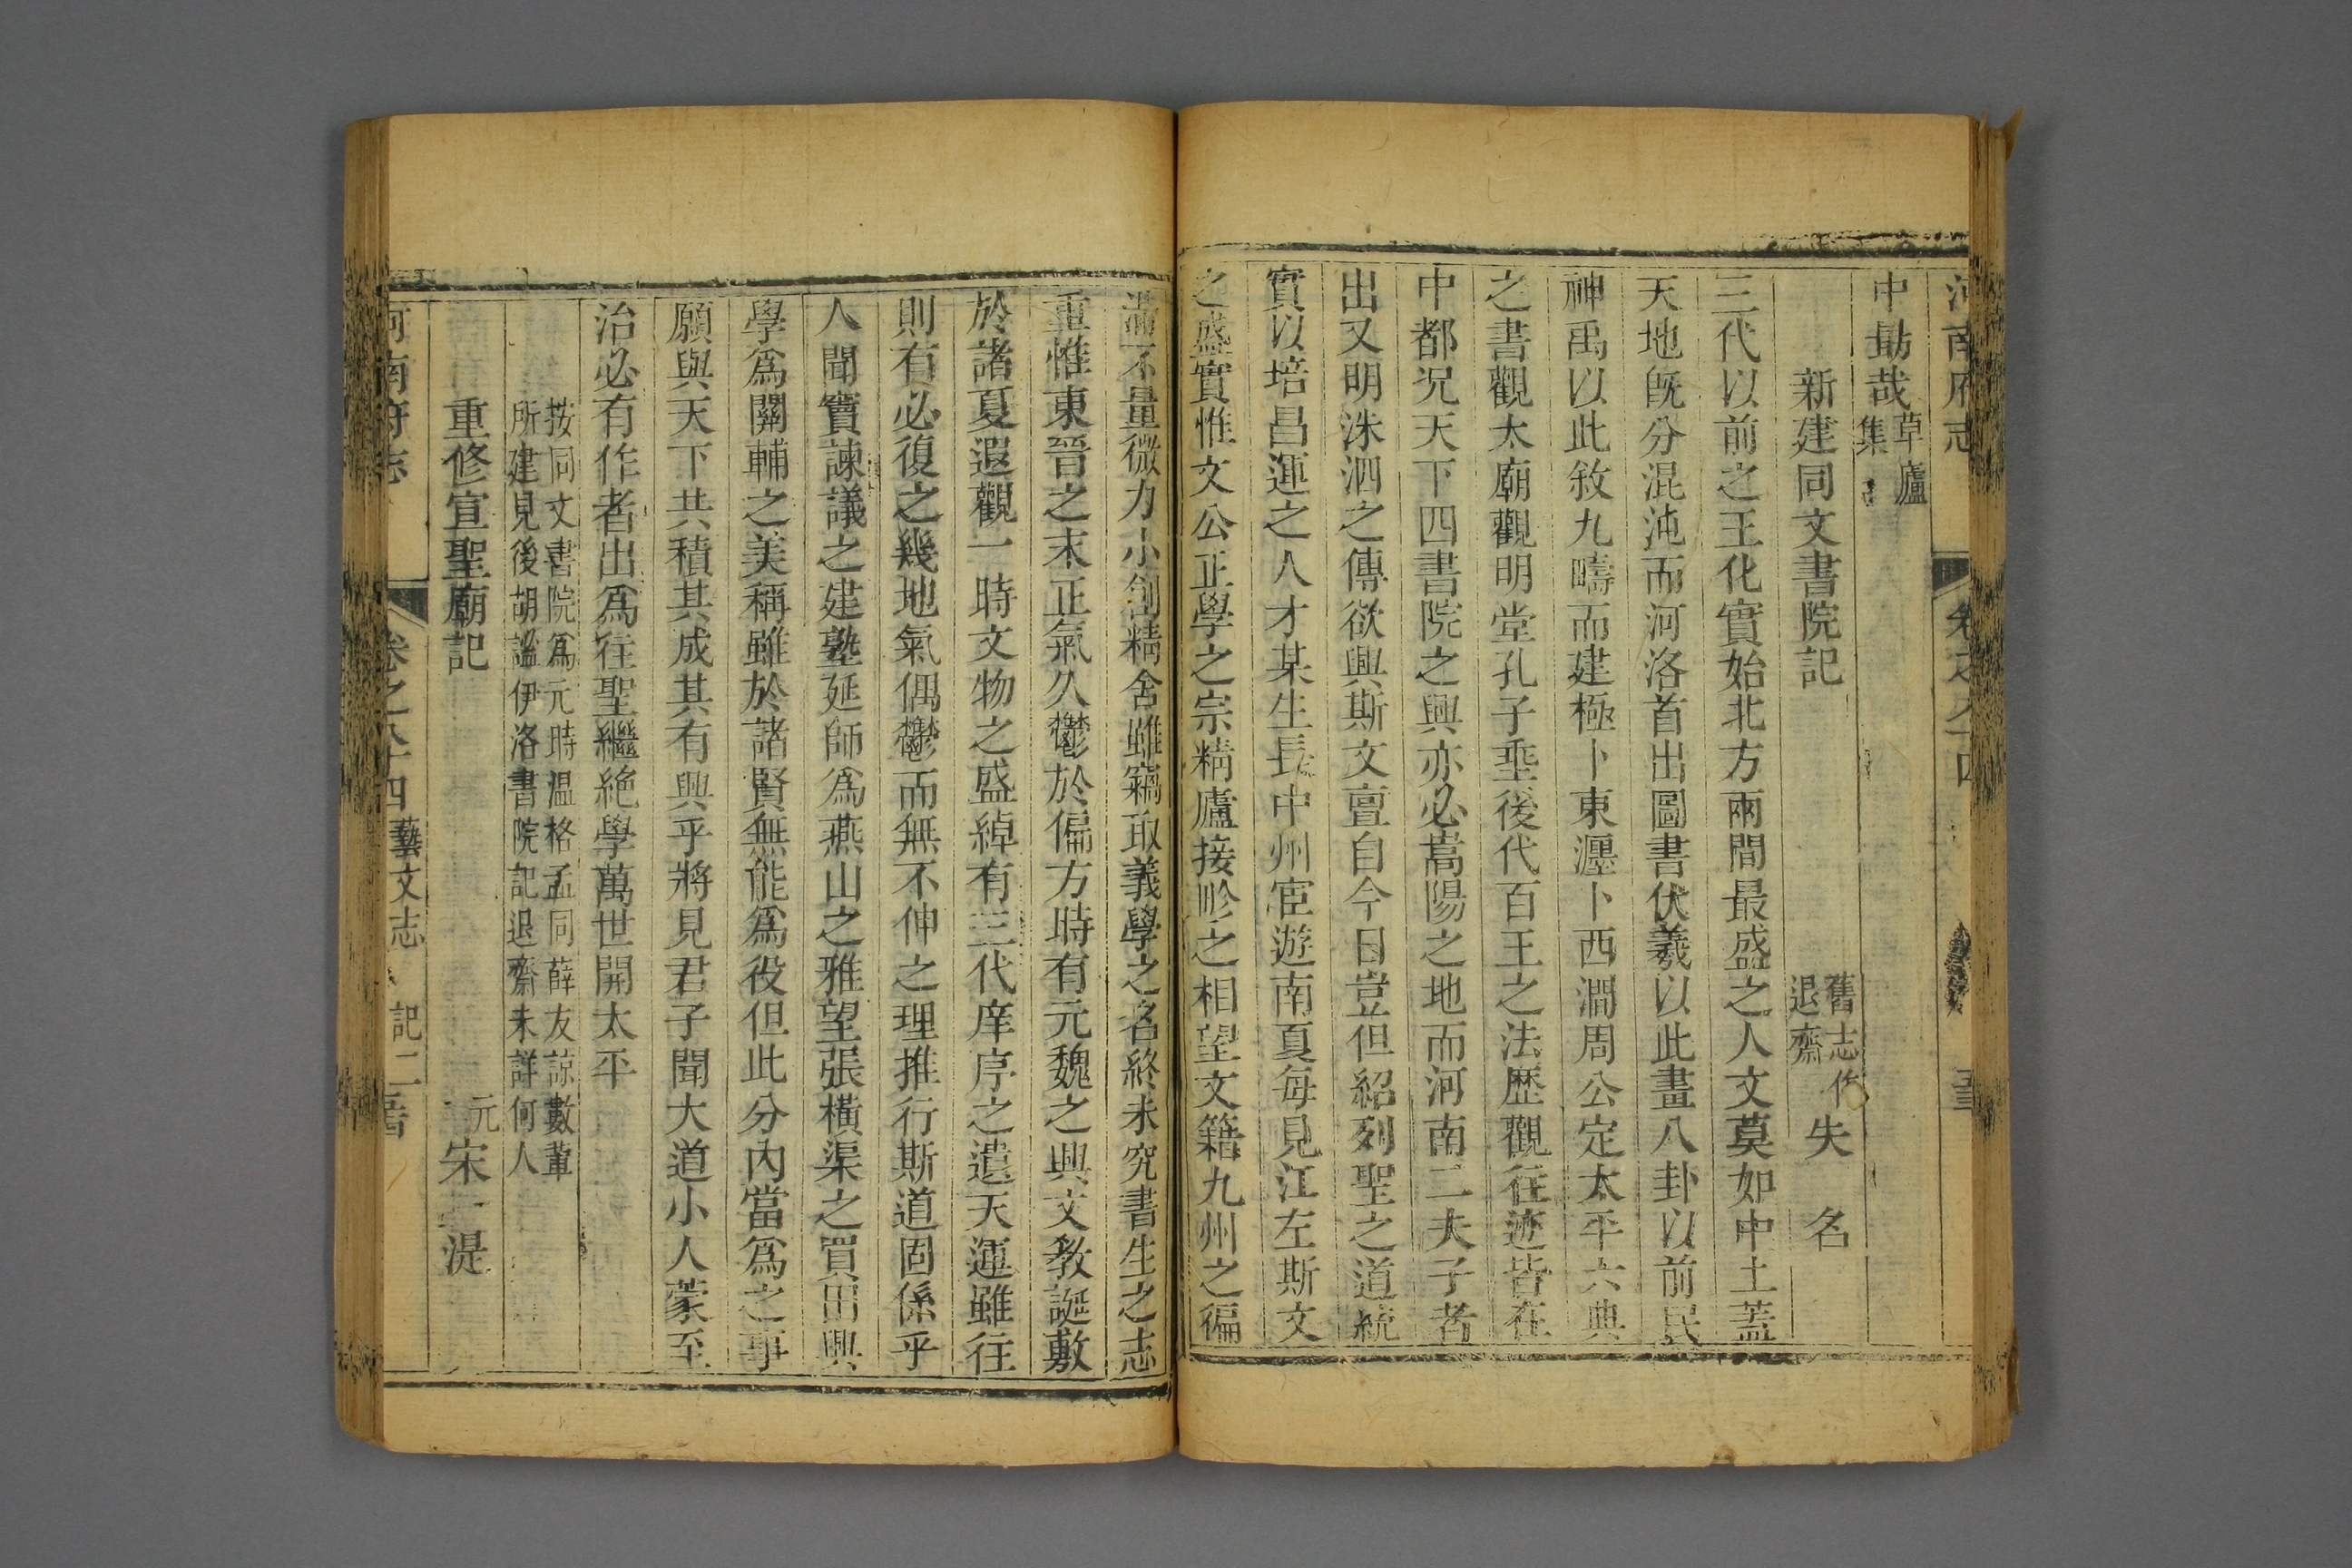 河南府志
中勗哉草廬集
新建同文書院記 舊志作退齋 失名
三代以前之王化實始北方兩間最盛之人文莫如中土蓋
天地旣分混沌而河洛首出圖書伏羲以此畫八卦以前民
神禹以此敘九疇而建極卜東瀍卜西澗周公定太平六典
之書觀太廟觀明堂孔子垂後代百王之法歴觀往迹皆在
中都况天下四書院之興亦必嵩陽之地而河南二夫子者
出又明洙泗之傳欲興斯文亶自今日豈但紹列聖之道統
實以培昌運之人才某生長中州宦遊南夏每見江左斯文
之盛實惟文公正學之宗精廬接畛之相望文籍九州之徧
滿不量微力小創精舍雖竊取義學之名終未究書生之志
重惟東晉之末正氣久鬱於偏方時有元魏之興文教誕敷
於諸夏遐觀一時文物之盛綽有三代庠序之遺天運雖往
則有必復之幾地氣偶鬱而無不伸之理推行斯道固係乎
人聞竇諫議之建塾延師爲燕山之雅望張橫渠之買田興
學爲關輔之美稱雖於諸賢無能爲役但此分內當爲之事
願與天下共積其成其有興乎將見君子聞大道小人蒙至
治必有作者出爲往聖繼絶學萬世開太平
按同文書院爲元時温格孟同薛友諒數輩
所建見後胡謐伊洛書院記退齋未詳何人
重修宣聖廟記 元宋渥
河南府志 卷之八十四 藝文志 記二